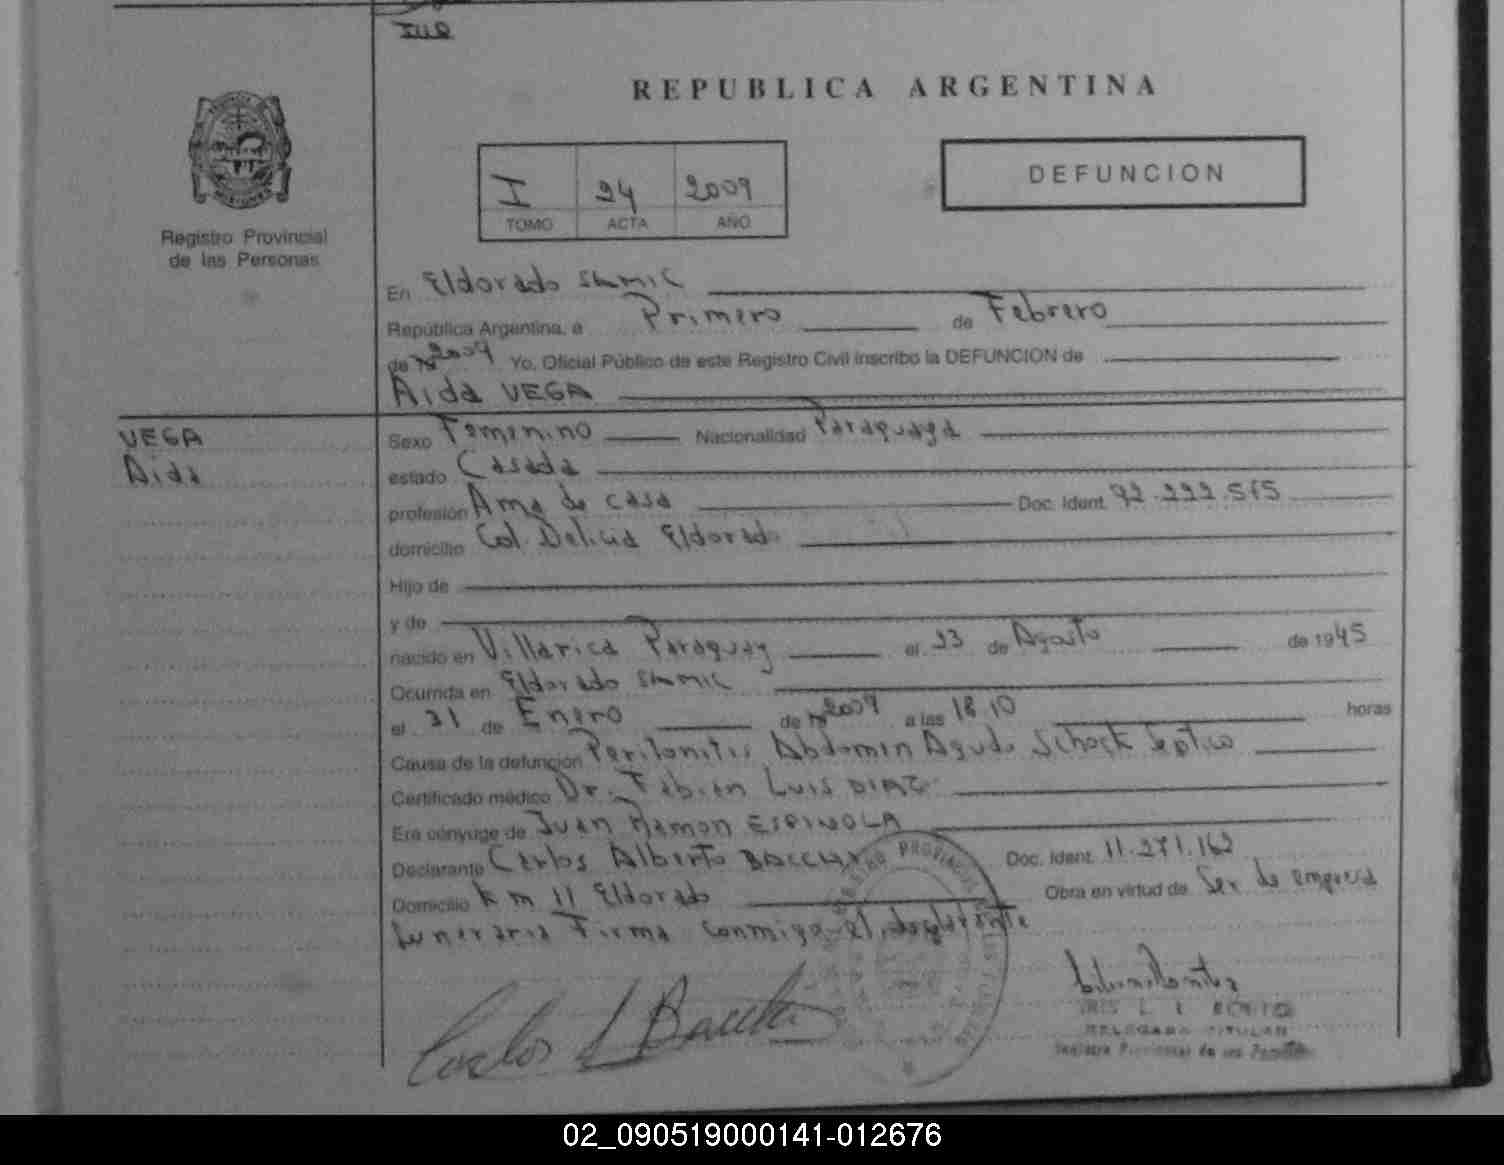 REPUBLICA ARGENTINA
I 24 2009
TOMO ACTA AÑO
DEFUNCION
Registro Provincial
de las Personas
En Eldorado
República Argentina, a Primero de Febrero
de 2009 Yo, Oficial Público de este Registro Civil inscribo la DEFUNCION de
Aida VEGA
VEGA
Aida
Sexo Femenino Nacionalidad Paraguaya
estado Casada
profesión Ama de casa Doc. Ident. 92.222.515
domicilio Col. Delicia Eldorado
Hijo de
y de
nacido en Villarica Paraguay el 23 de Agosto de 1945
Ocurrida en Eldorado
el 31 de Enero de 2009 a las 18 10 horas
Causa de la defunción Peritonitis Abdomen Agudo Schock Septico
Certificado médico Dr. Fabian Luis DIAZ
Era cónyuge de Juan Ramon ESPINOLA
Declarante Carlos Alberto BACCHI Doc. Ident. 11.271.162
Domicilio km 11 Eldorado Obra en virtud de Ser de empresa
funeraria Firma conmigo el declarante
DELEGADA TITULAR
Registro Provincial de las Personas
02_090519000141-012676